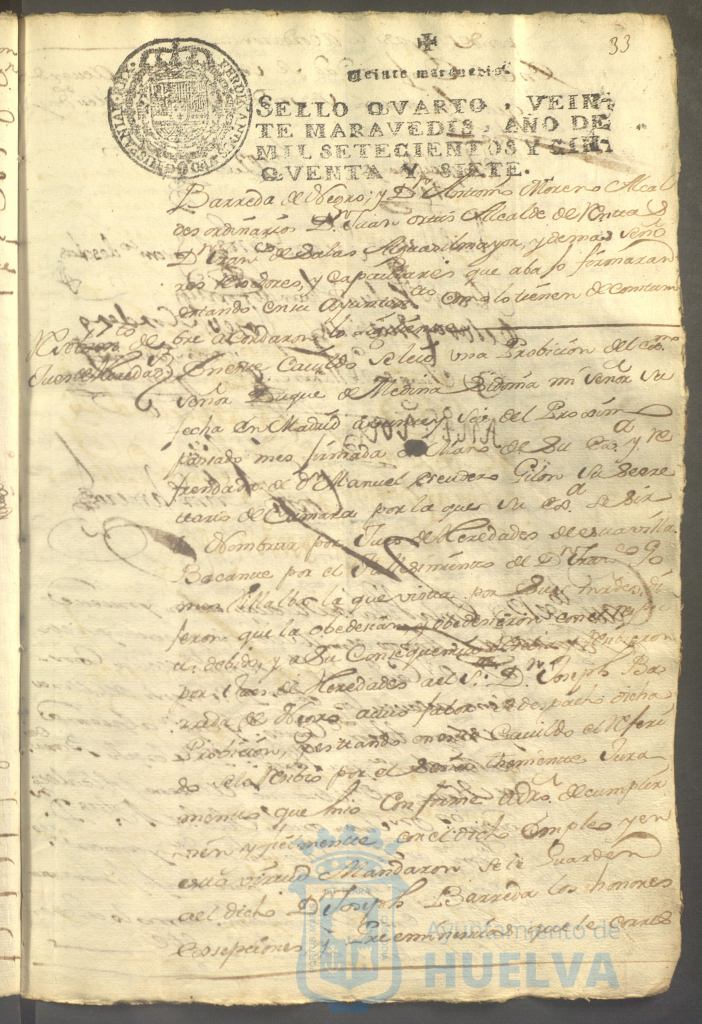 33
Veinte maravedis.
SELLO QVARTO, VEIN-
TE MARAVEDIS, AÑO DE
MIL SETECIENTOS Y CIN-
QVENTA Y SIETE.
Barreda de Negro; y Dn. Antonio Moreno Alcal
des ordinarios Dn. Juan Alcalde de
Dn. Franco. de Salas Alguasilmayor, y demas Señores
Rexidores, y Capitulares que abajo firmaran
estando en su Ayuntto. como lo tienen de costum
bre acordaron lo siguiente
Juez de Heredades
En este Cavildo se leió una Probicion del exmo.
señor Duque de Medina Sidonia mi señor su
fecha en Madrid a del Proximo
pasado mes firmada de Mano de Su Exa. y re
frendada de Dn. Manuel Escudero Gilon su Secre
tario de Camara por la que su Exa. se sir
Nombrar por Juez de Heredades de esta villa
Bacante por el Fallesimiento de Dn. Franco. Go
mez Villalba la que vista por Sus mrdes. di
jeron que la obedesian y obedesieron con el
debido, y a Su Consequencia
por Juez de Heredades al Sr. Dn. Joseph Ba
rreda de Negro a cuio fabor es despachada dicha
Probicion, y estando en este Cavildo el referi
do se le resibio por el Señor theniente Jura
mento que hizo conforme a dro. de cumplir
vien y fielmente con el dicho Empleo y en
esta virtud Mandaron se le Guarden
al dicho Dn. Joseph Barreda los honores
essepciones y Preeminensias que le corres
Ayuntamiento de
HUELVA